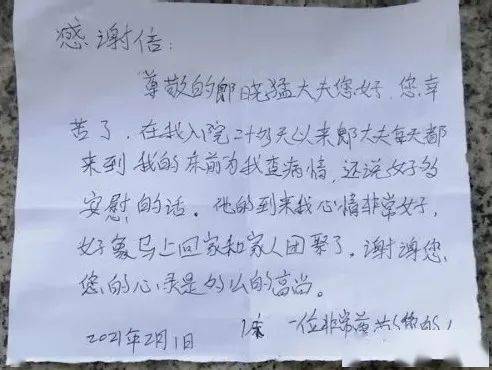 感谢信：
尊敬的郎晓猛大夫您好，您辛
苦了，在我入院二十多天以来郎大夫每天都
来到我的床前为我查病情，还说好多
安慰的话。他的到来我心情非常好，
好象马上回家和家人团聚了。谢谢您，
您的心灵是多么的高尚。
2021年2月1日 一位非常